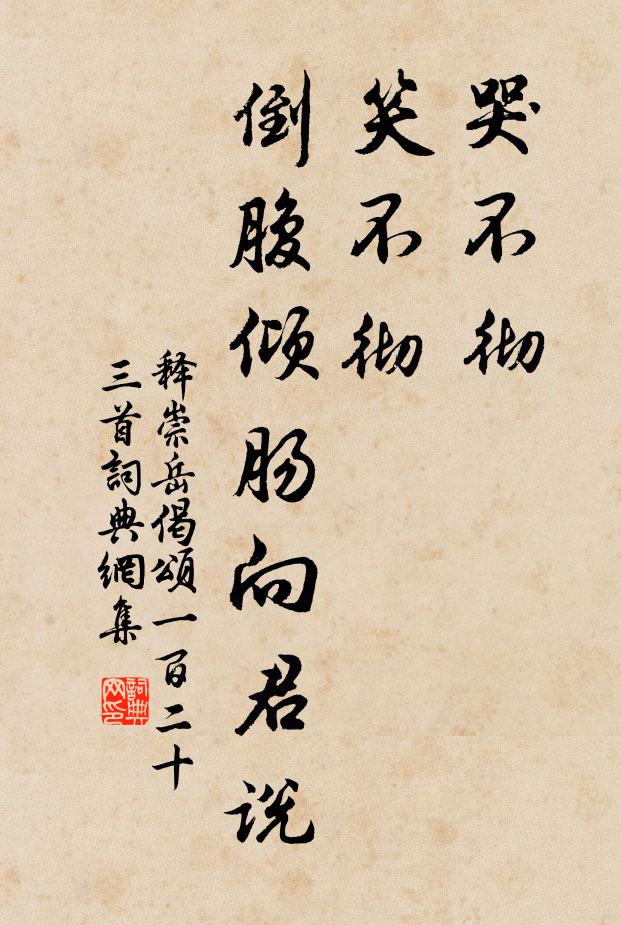 哭不彻
笑不彻
倒腹倾肠向君说
释崇岳偈頌一百二十
三首詞典網集
詞典
网印